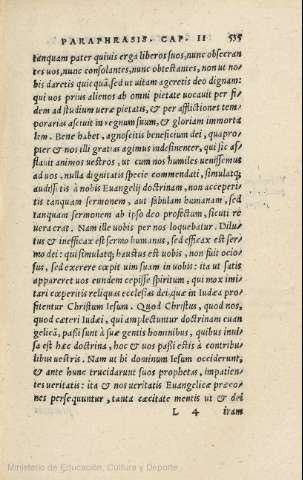 PARAPHRASIS. CAP. II 535
tanquam pater quiuis erga liberos suos, nunc obsecran
tes uos, nunc consolantes, nunc obtestantes, non ut no
bis daretis quicquã, sed ut uitam ageretis deo dignam:
qui uos prius alienos ab omni pietate uocauit per fi=
dem ad studium ueræ pietatis, & per afflictiones tem
porarias asciuit in regnum suum, & gloriam immorta
lem. Bene habet, agnoscitis beneficium dei, quapro=
pter & nos illi gratias agimus indesinenter, qui sic af=
flauit animos uestros, ut cum nos humiles uenissemus
ad uos, nulla dignitatis specie commendati, simulatq;
audissetis à nobis Euangelij doctrinam, non acceperi=
tis tanquam sermonem, aut fabulam humanam, sed
tanquam sermonem ab ipso deo profectum, sicuti re
uera erat. Nam ille uobis per nos loquebatur. Dilu=
tus & inefficax est sermo humanus, sed efficax est ser=
mo dei: qui simulatq; haustus est uobis, non fuit ocio=
sus, sed exerere cœpit uim suam in uobis: ita ut satis
appareret uos eundem cepisse spiritum, qui mox imi=
tari cœperitis reliquas ecclesias dei, quæ in Iudæa pro=
fitentur Christum Iesum. Quod Christus, quod nos,
quod cæteri Iudæi, qui amplectuntur doctrinam euan
gelicã, passi sunt à suæ gentis hominibus, quibus inui=
sa est hæc doctrina, hoc & uos passi estis à contribu=
libus uestris. Nam ut hi dominum Iesum occiderunt,
& ante hunc trucidarunt suos prophetas, impatien=
tes ueritatis: ita & nos ueritatis Euangelicæ præco=
nes persequuntur, tanta cæcitate mentis ut & dei
L 4 iram
Ministerio de Educación, Cultura y Deporte